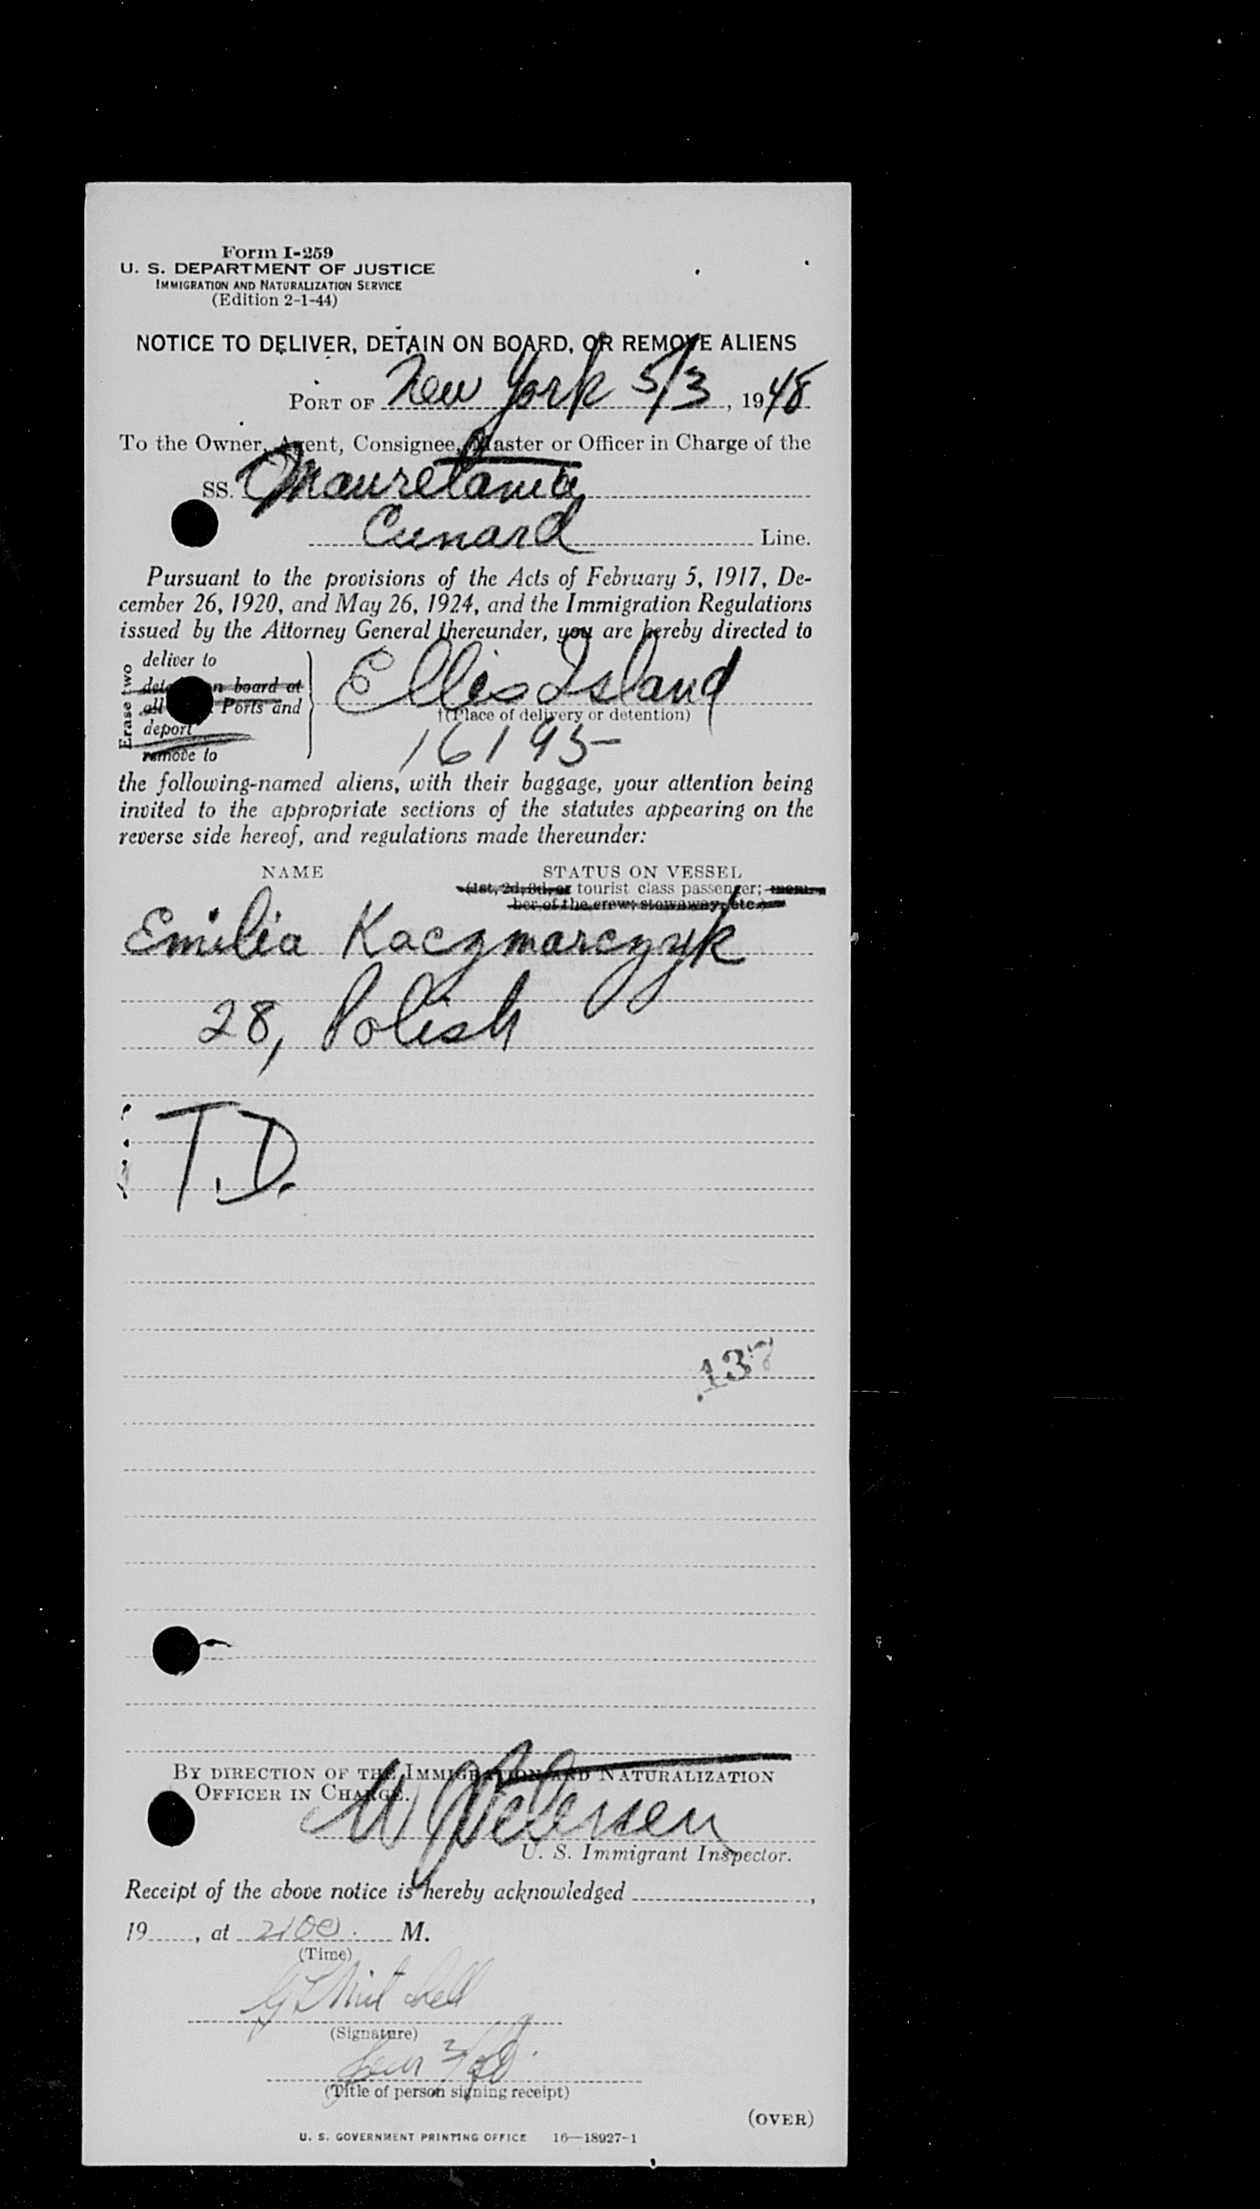 Form I-259
U. S. DEPARTMENT OF JUSTICE
IMMIGRATION AND NATURALIZATION SERVICE
(Edition 2-1-44)
NOTICE TO DELIVER, DETAIN ON BOARD, OR REMOVE ALIENS
PORT OF New York 5/3, 1948
To the Owner, Agent, Consignee, Master or Officer in Charge of the
SS. Mauretania
Cunard Line.
Pursuant to the provisions of the Acts of February 5, 1917, De-
cember 26, 1920, and May 26, 1924, and the Immigration Regulations
issued by the Attorney General thereunder, you are hereby directed to
Erase two
deliver to
n board at
all Ports and
deport
remove to
Ellis Island
†(Place of delivery or detention)
16195
the following-named aliens, with their baggage, your attention being
invited to the appropriate sections of the statutes appearing on the
reverse side hereof, and regulations made thereunder:
NAME STATUS ON VESSEL
(1st, 2d, 3d, or tourist class passenger; mem-
ber of the crew; stowaway, etc.)
Emilia Kaczmarczyk
28, Polish
T.D.
137
BY DIRECTION OF THE IMMIGRATION AND NATURALIZATION
OFFICER IN CHARGE.
Petersen
U. S. Immigrant Inspector.
Receipt of the above notice is hereby acknowledged ,
19 , at 2100 M.
(Time)
Mitchell
(Signature)
(Title of person signing receipt)
(OVER)
U. S. GOVERNMENT PRINTING OFFICE 16—18927-1